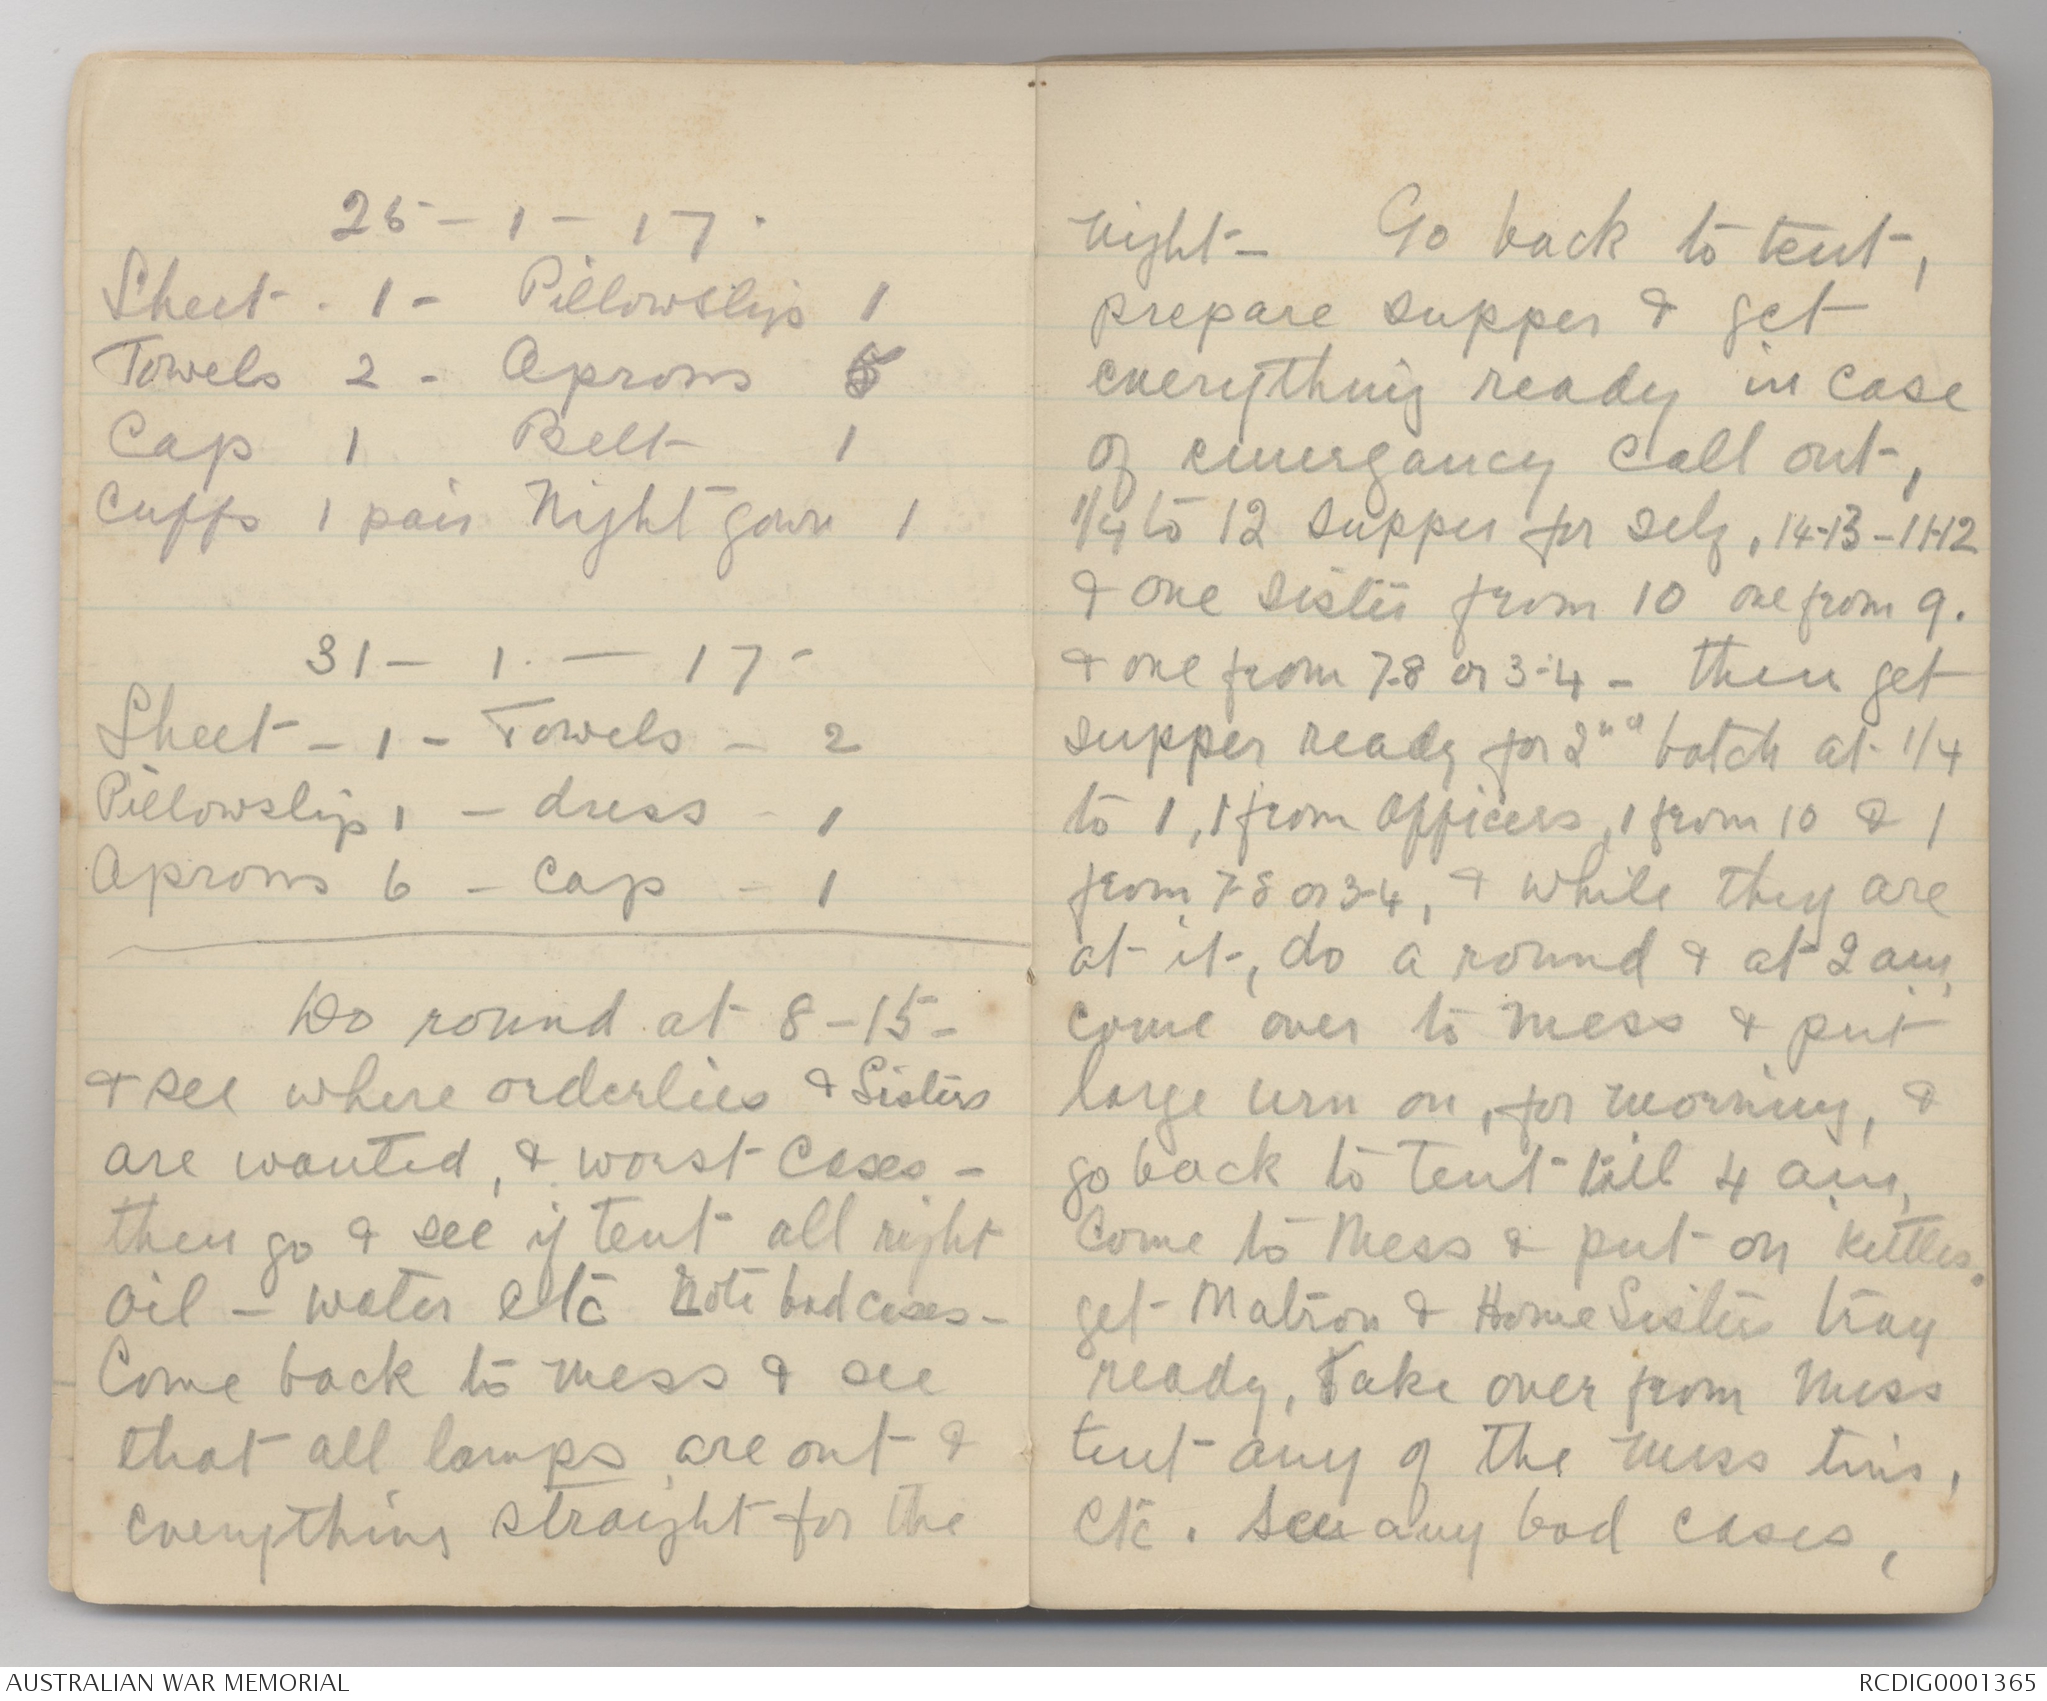 25 - 1 - 17.
Sheet . 1 - Pillowslip 1
Towels 2 - Aprons
Cap 1 Belt 1
Cuffs 1 pair Nightgown 1
31 - 1. - 17 -
Sheet - 1 - Towels - 2
Pillowslip 1 - dress - 1
Aprons 6 - Cap - 1
Do round at 8-15-
& see where orderlies & Sisters
are wanted, & worst cases -
then go & see if tent all right
oil - water etc Note bad cases -
Come back to mess & see
that all lamps are out &
everything straight for the
night - Go back to tent,
prepare supper & get
everything ready in case
of emergancy call out,
1/4 to 12 supper for self, 14-13-11-12
& one sister from 10 one from 9.
& one from 7-8 or 3-4 - then get
supper ready for 2nd batch at 1/4
to 1, 1 from Officers, 1 from 10 & 1
from 7-8 or 3-4, & while they are
at it, do a round & at 2 am,
come over to mess & put
large urn on, for morning, &
go back to tent till 4 am,
Come to Mess & put on kettles.
get Matron & Home Sisters tray
ready, Take over from Mess
tent any of the mess tins,
etc. See any bad cases,
AUSTRALIAN WAR MEMORIAL
RCDIG0001365